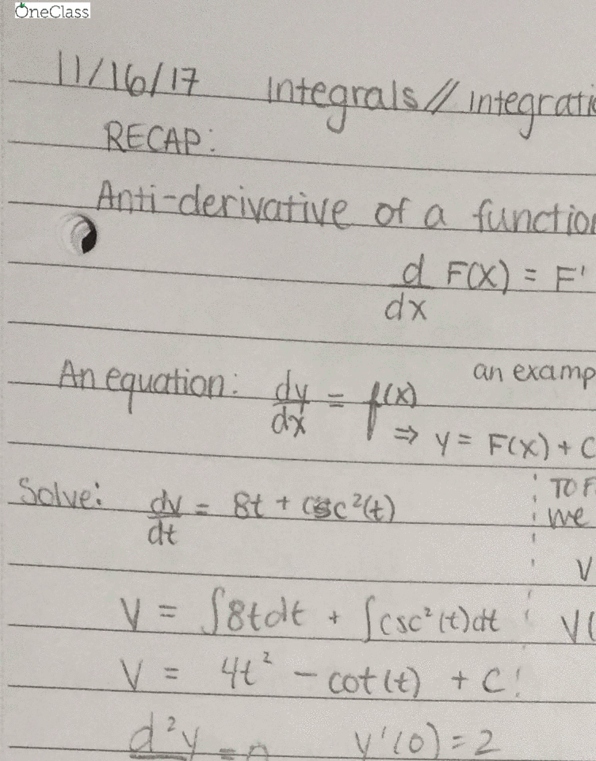 OneClass
11/16/17 Integrals // integrati
RECAP:
Anti-derivative of a function
d/dx F(x) = F'
An equation: dy/dx = f(x) an examp
⇒ y = F(x) + C
Solve: dv/dt = 8t + csc²(t) TO F
we
V
V = ∫8tdt + ∫csc²(t)dt V(
V = 4t² - cot(t) + C!
d²y = 0 y'(0) = 2